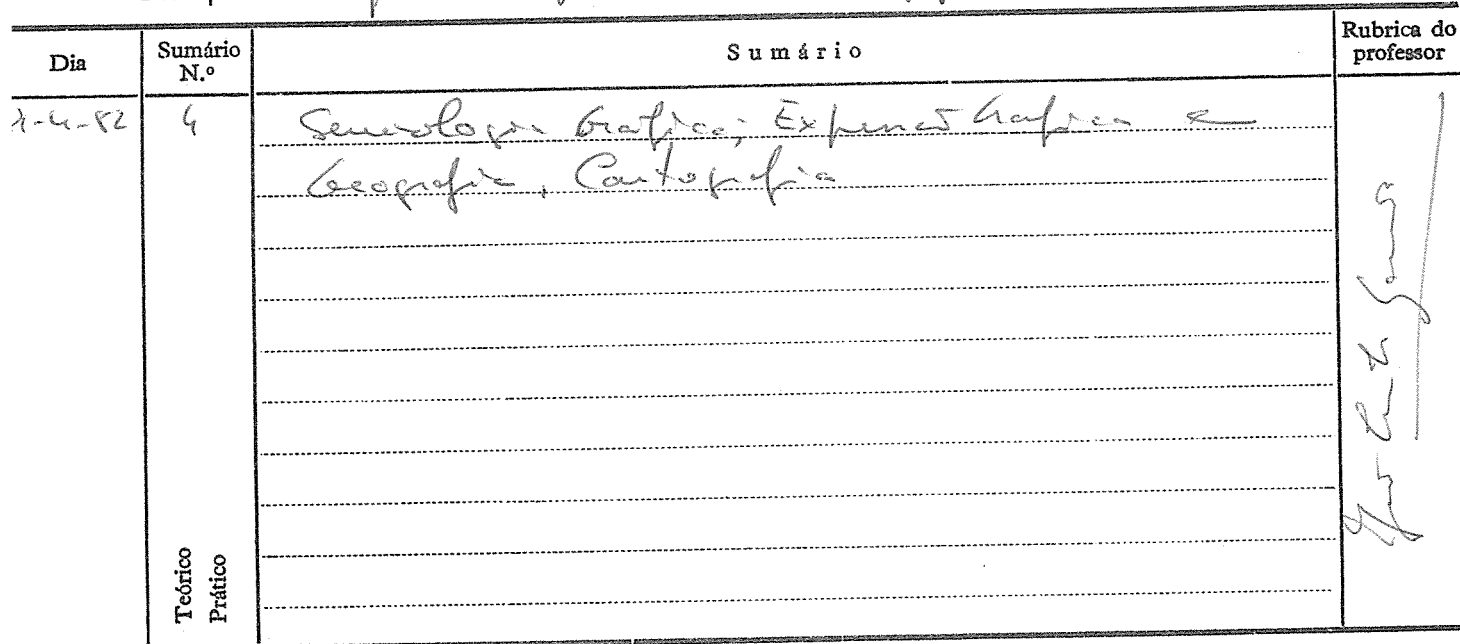 Dia
Sumário N.º
Sumário
Rubrica do professor
4-82
4
Semiologia Gráfica; Expressão Gráfica e
Geografia, Cartografia
Teórico
Prático